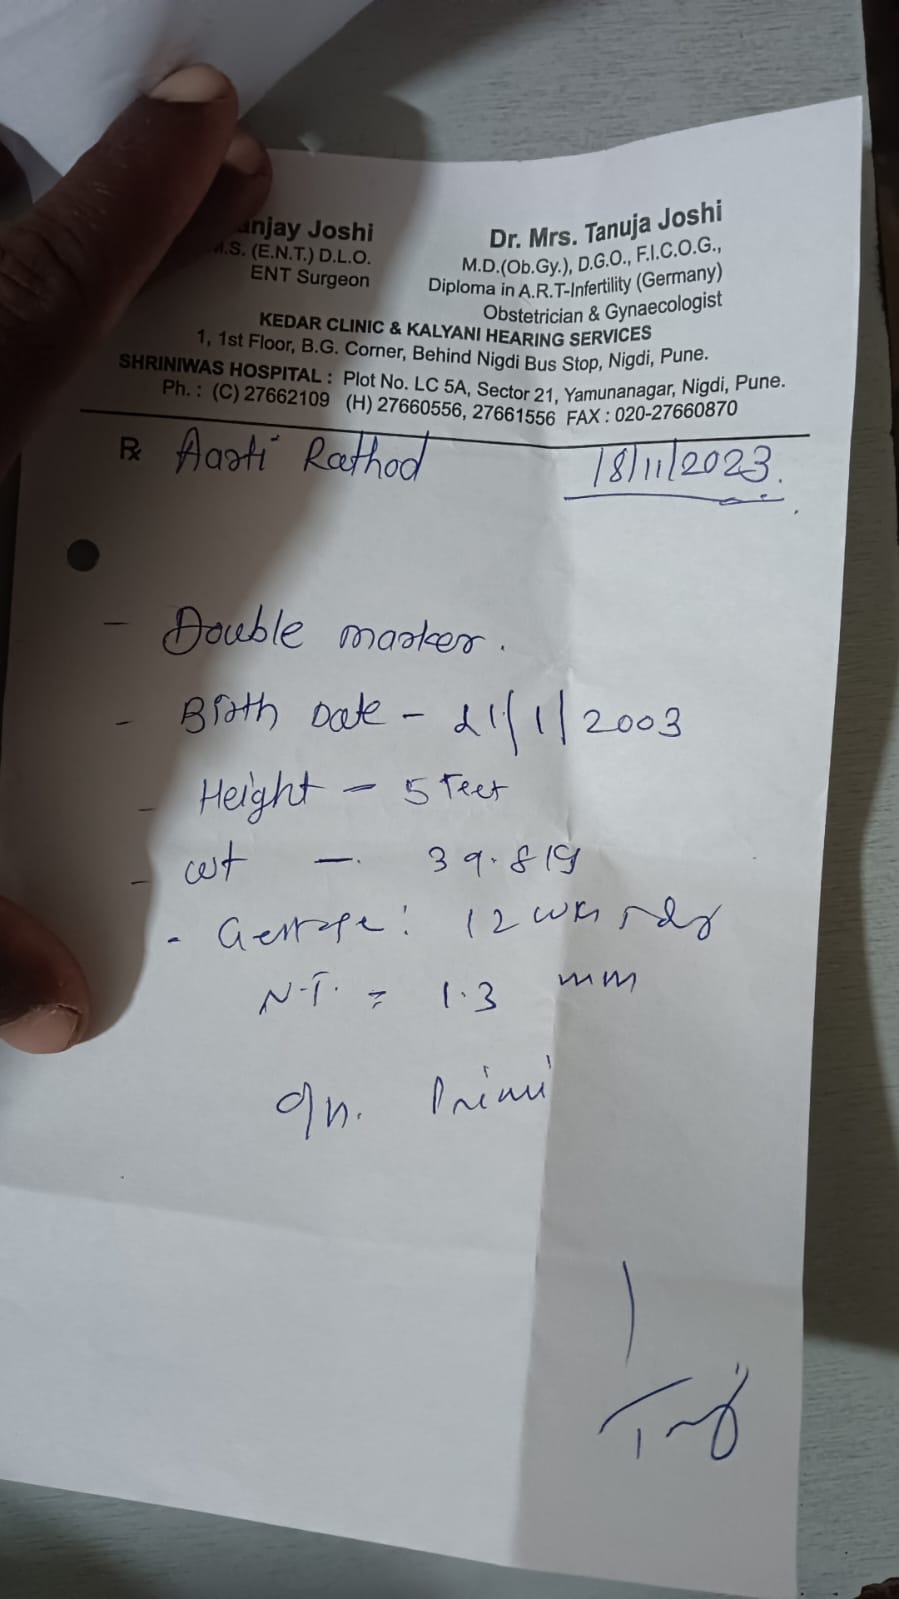 anjay Joshi
M.S. (E.N.T.) D.L.O.
ENT Surgeon
Dr. Mrs. Tanuja Joshi
M.D.(Ob.Gy.), D.G.O., F.I.C.O.G.,
Diploma in A.R.T-Infertility (Germany)
Obstetrician & Gynaecologist
KEDAR CLINIC & KALYANI HEARING SERVICES
1, 1st Floor, B.G. Corner, Behind Nigdi Bus Stop, Nigdi, Pune.
SHRINIWAS HOSPITAL : Plot No. LC 5A, Sector 21, Yamunanagar, Nigdi, Pune.
Ph. : (C) 27662109 (H) 27660556, 27661556 FAX : 020-27660870
℞ Aarti Rathod 18/11/2023.
- Double marker.
- Birth Date - 21/1/2003
- Height - 5 feet
- wt -. 39.819
- Gestage: 12 wks
N.T. = 1.3 mm
Primi